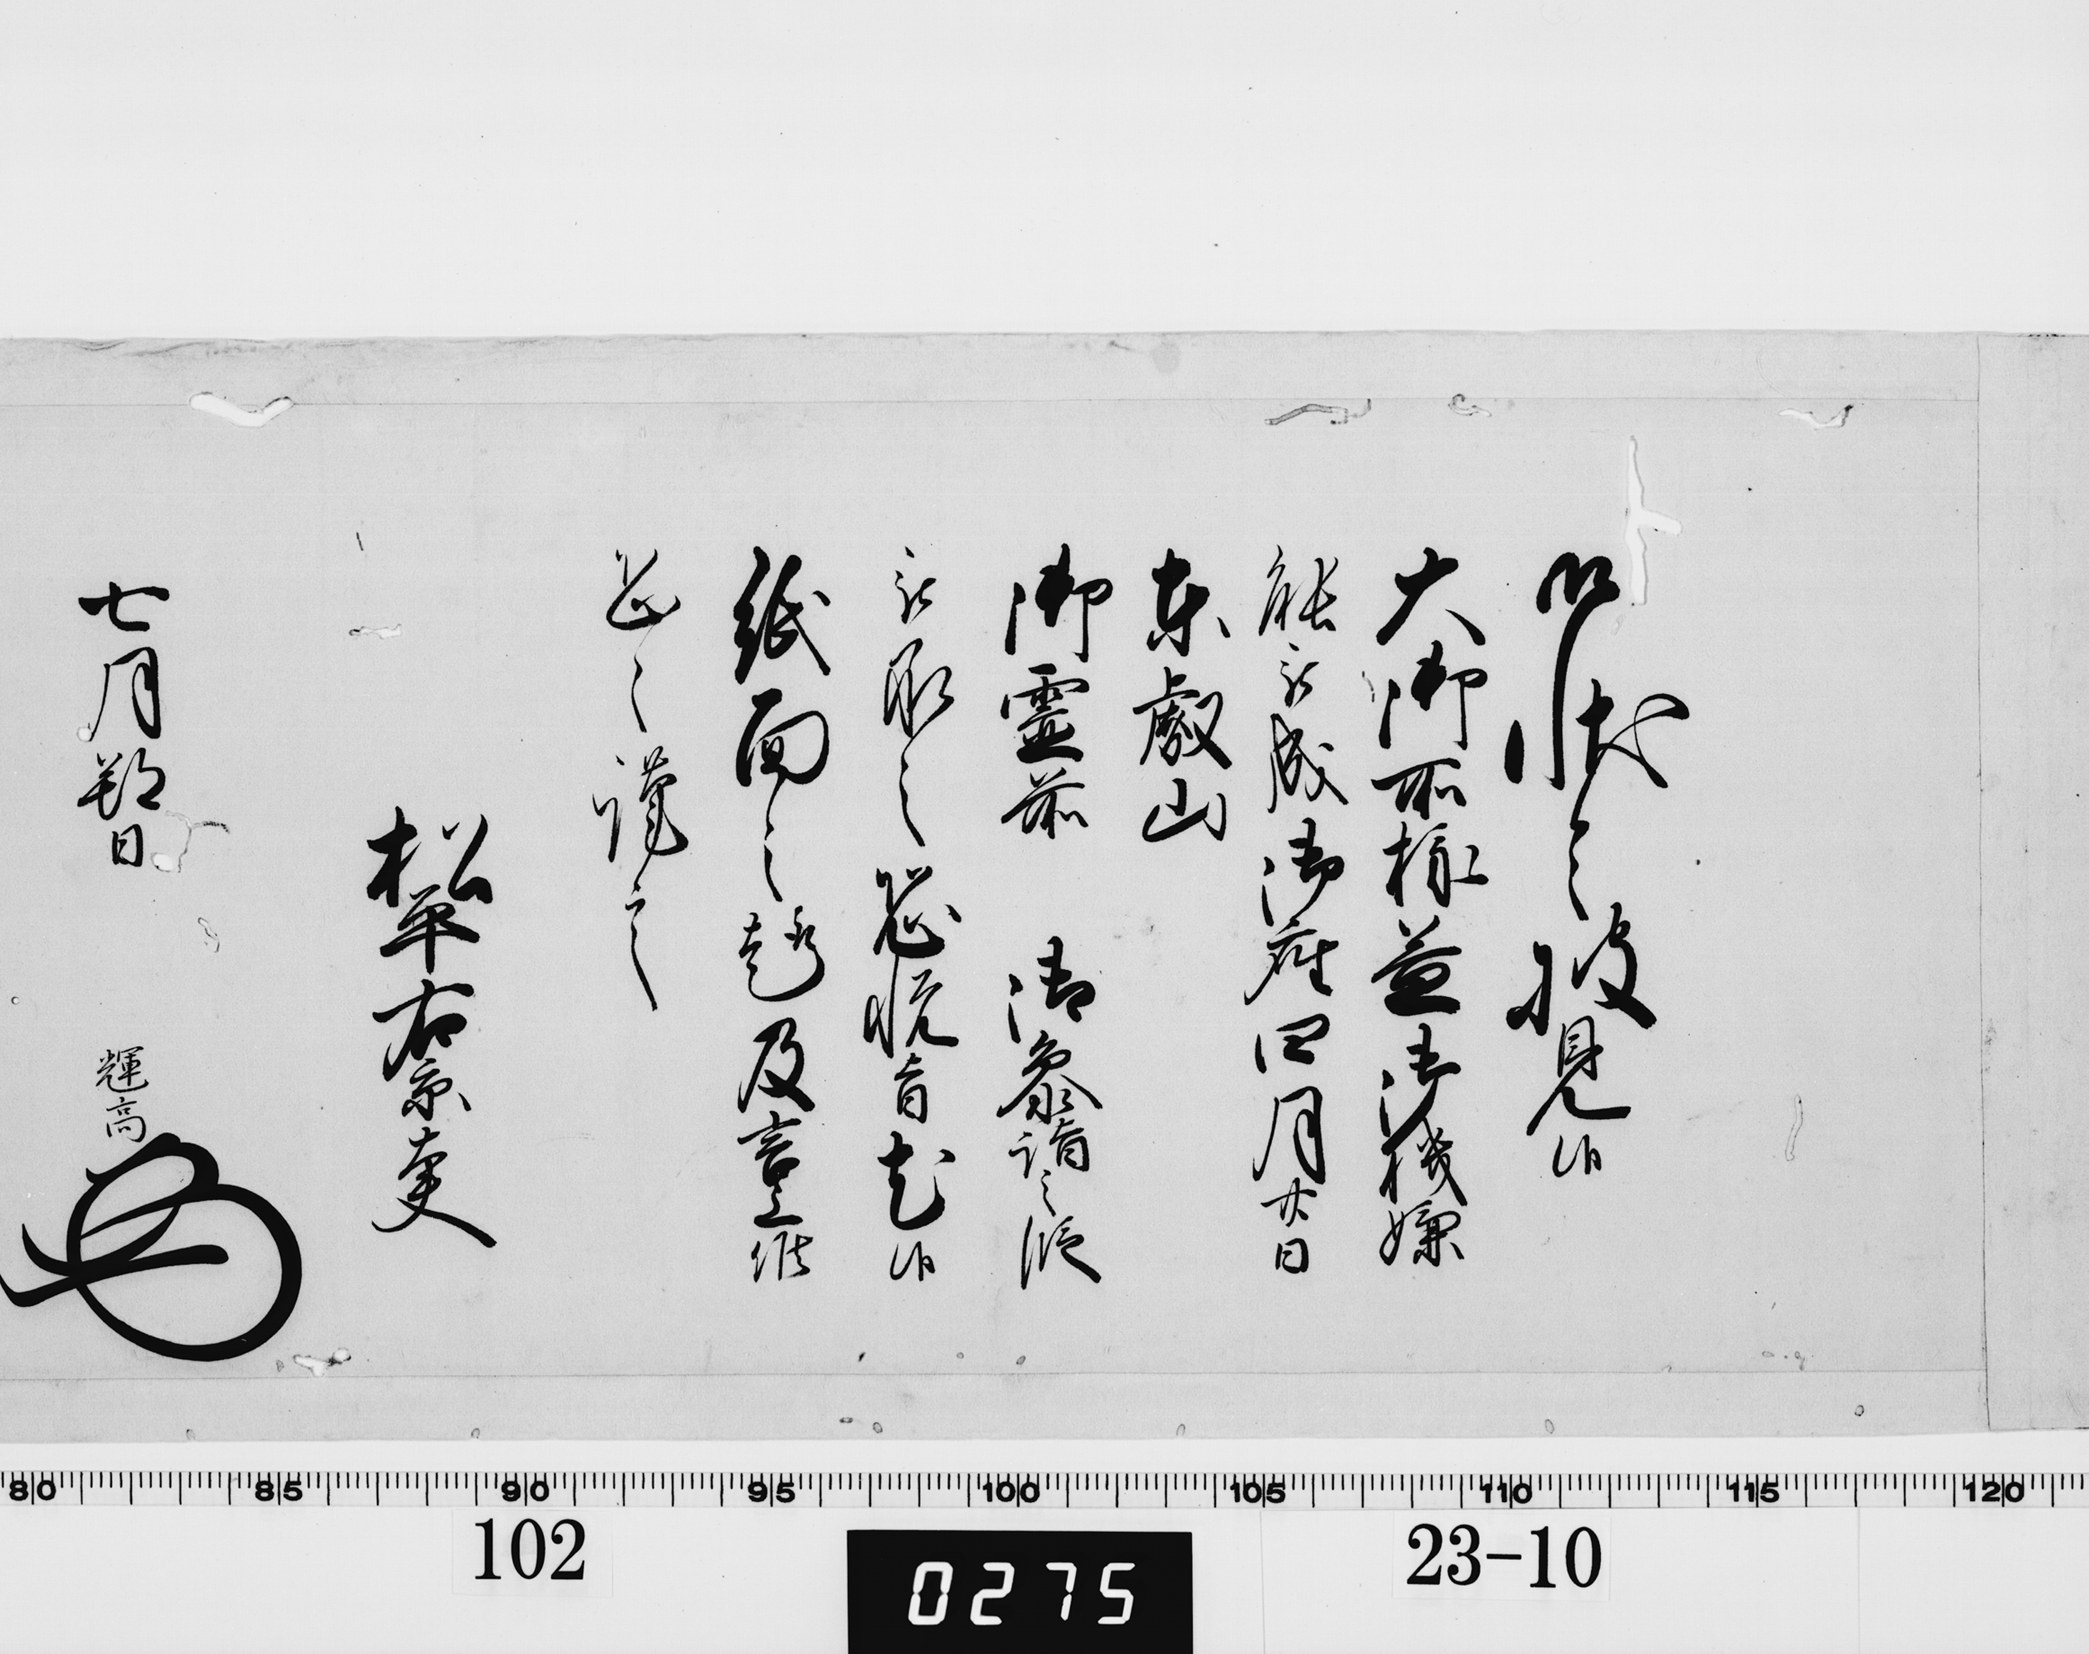 御状令披見候
大御所様益御機嫌
能被成御座四月廿日
東叡山
御霊前　御参詣之段
被承之恐悦旨尤候
紙面之趣及言上候
恐々謹言
松平右京大夫
七月朔日　輝高
80 85 90 95 100 105 110 115 120
102
0275
23-10